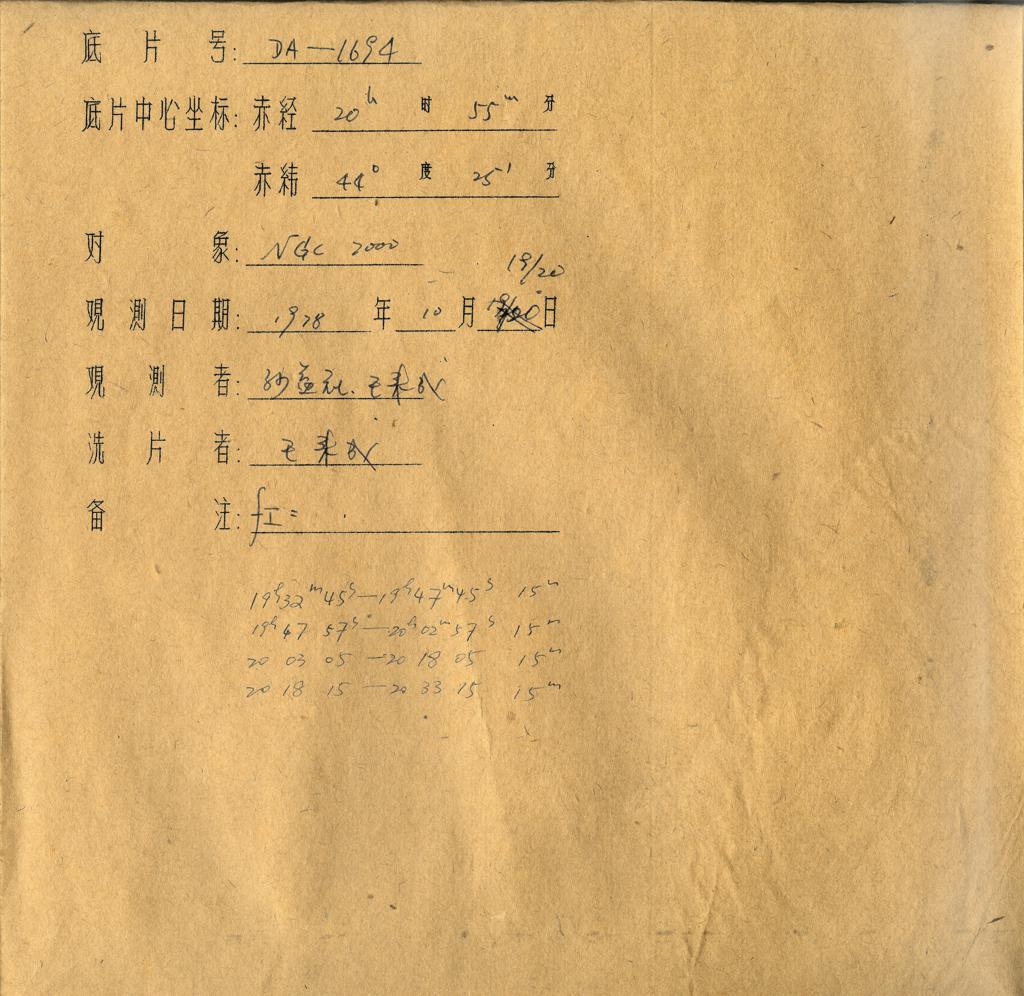 底片号: DA—1694
底片中心坐标: 赤经 20h 时 55m 分
赤纬 44° 度 25' 分
对象: NGC 7000
19/20
观测日期: 1978 年 10 月 日
观测者:
洗片者:
备注: fI=
19h32m45s—19h47m45s 15m
19h47 57s—20h02m57s 15m
20 03 05 —20 18 05 15m
20 18 15 —20 33 15 15m